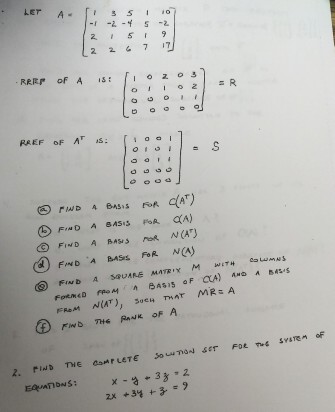 1 3 5 1 10
LET A = -1 -2 -4 5 -2
2 1 5 1 9
2 2 6 7 17
1 0 2 0 3
RREF OF A IS: 0 1 1 0 2 = R
0 0 0 1 1
0 0 0 0 0
1 0 0 1
RREF OF Aᵀ IS: 0 1 0 1 = S
0 0 1 1
0 0 0 0
0 0 0 0
ⓐ FIND A BASIS FOR C(Aᵀ)
ⓑ FIND A BASIS FOR C(A)
ⓒ FIND A BASIS FOR N(Aᵀ)
ⓓ FIND A BASIS FOR N(A)
ⓔ FIND A SQUARE MATRIX M WITH COLUMNS
FORMED FROM A BASIS OF C(A) AND A BASIS
FROM N(Aᵀ), SUCH THAT MR = A
ⓕ FIND THE RANK OF A
2. FIND THE COMPLETE SOLUTION SET FOR THE SYSTEM OF
EQUATIONS: x - y + 3z = 2
2x + 3y + z = 9